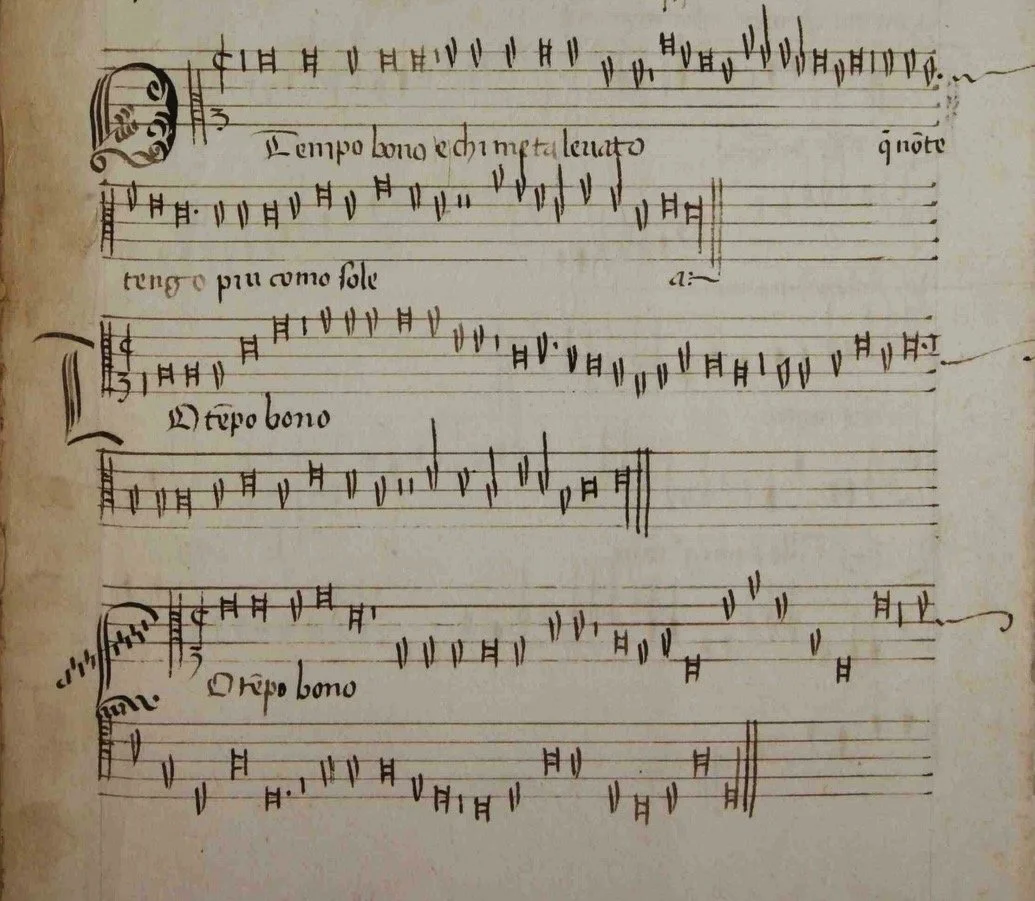 O Tempo bono e chi meta leuato q̄ nō te
tengo piu como sole a:~
O tēpo bono
O tēpo bono